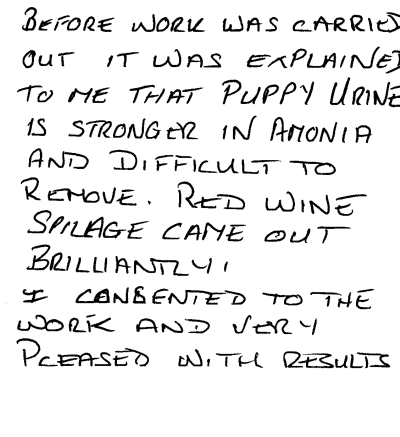 BEFORE WORK WAS CARRIED
OUT IT WAS EXPLAINED
TO ME THAT PUPPY URINE
IS STRONGER IN AMONIA
AND DIFFICULT TO
REMOVE. RED WINE
SPILAGE CAME OUT
BRILLIANTLY!
I CONSENTED TO THE
WORK AND VERY
PLEASED WITH RESULTS